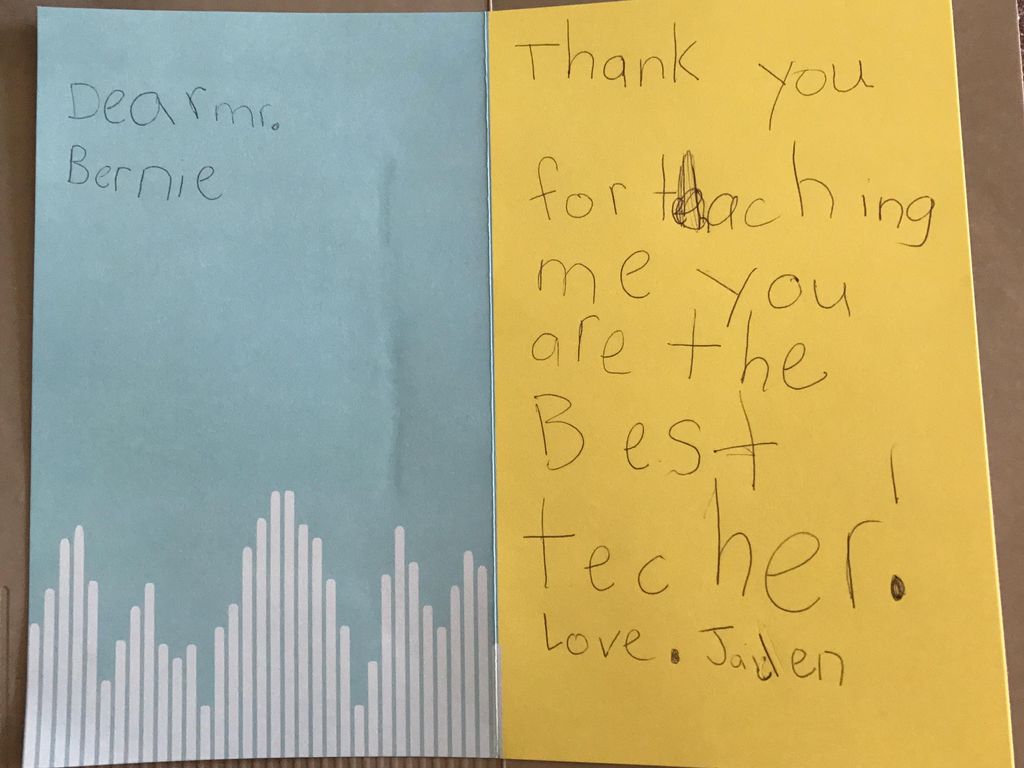 Dear mr.
Bernie
Thank you
for teaching
me you
are the
Best
techer!
Love. Jaiden